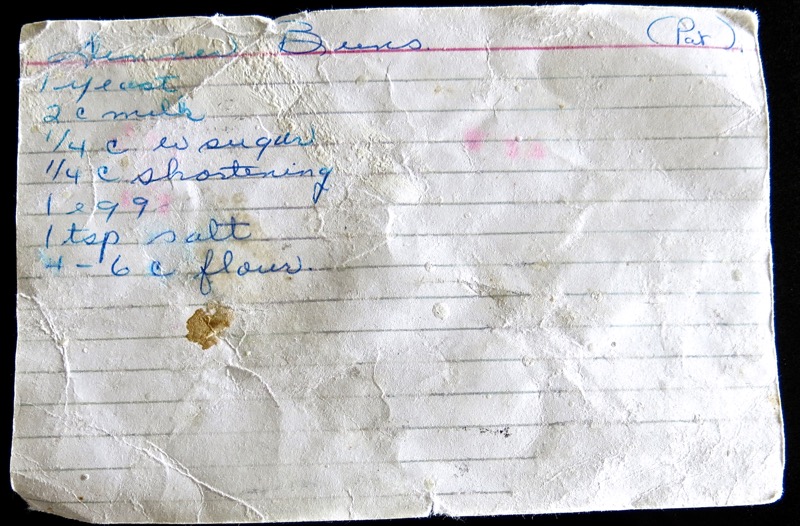 Buns (Pat)
1 yeast
2 c milk
1/4 c w sugar
1/4 c shortening
1 egg
1 tsp salt
4 - 6 c flour.